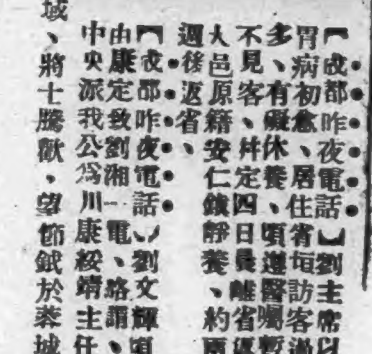 【成都昨夜電話】劉主席以
胃病初愈、居住省垣訪客過
多、有礙休養、頃遵醫囑暫
不見客、幷定四日晨離省返
大邑原籍安仁鎮靜養、約兩
週後返省、
【成都昨夜電話】劉文輝頃
由康定致劉湘一電、略謂、
中央派我公爲川康綏靖主任
、將士騰歡、望節鉞於蓉城